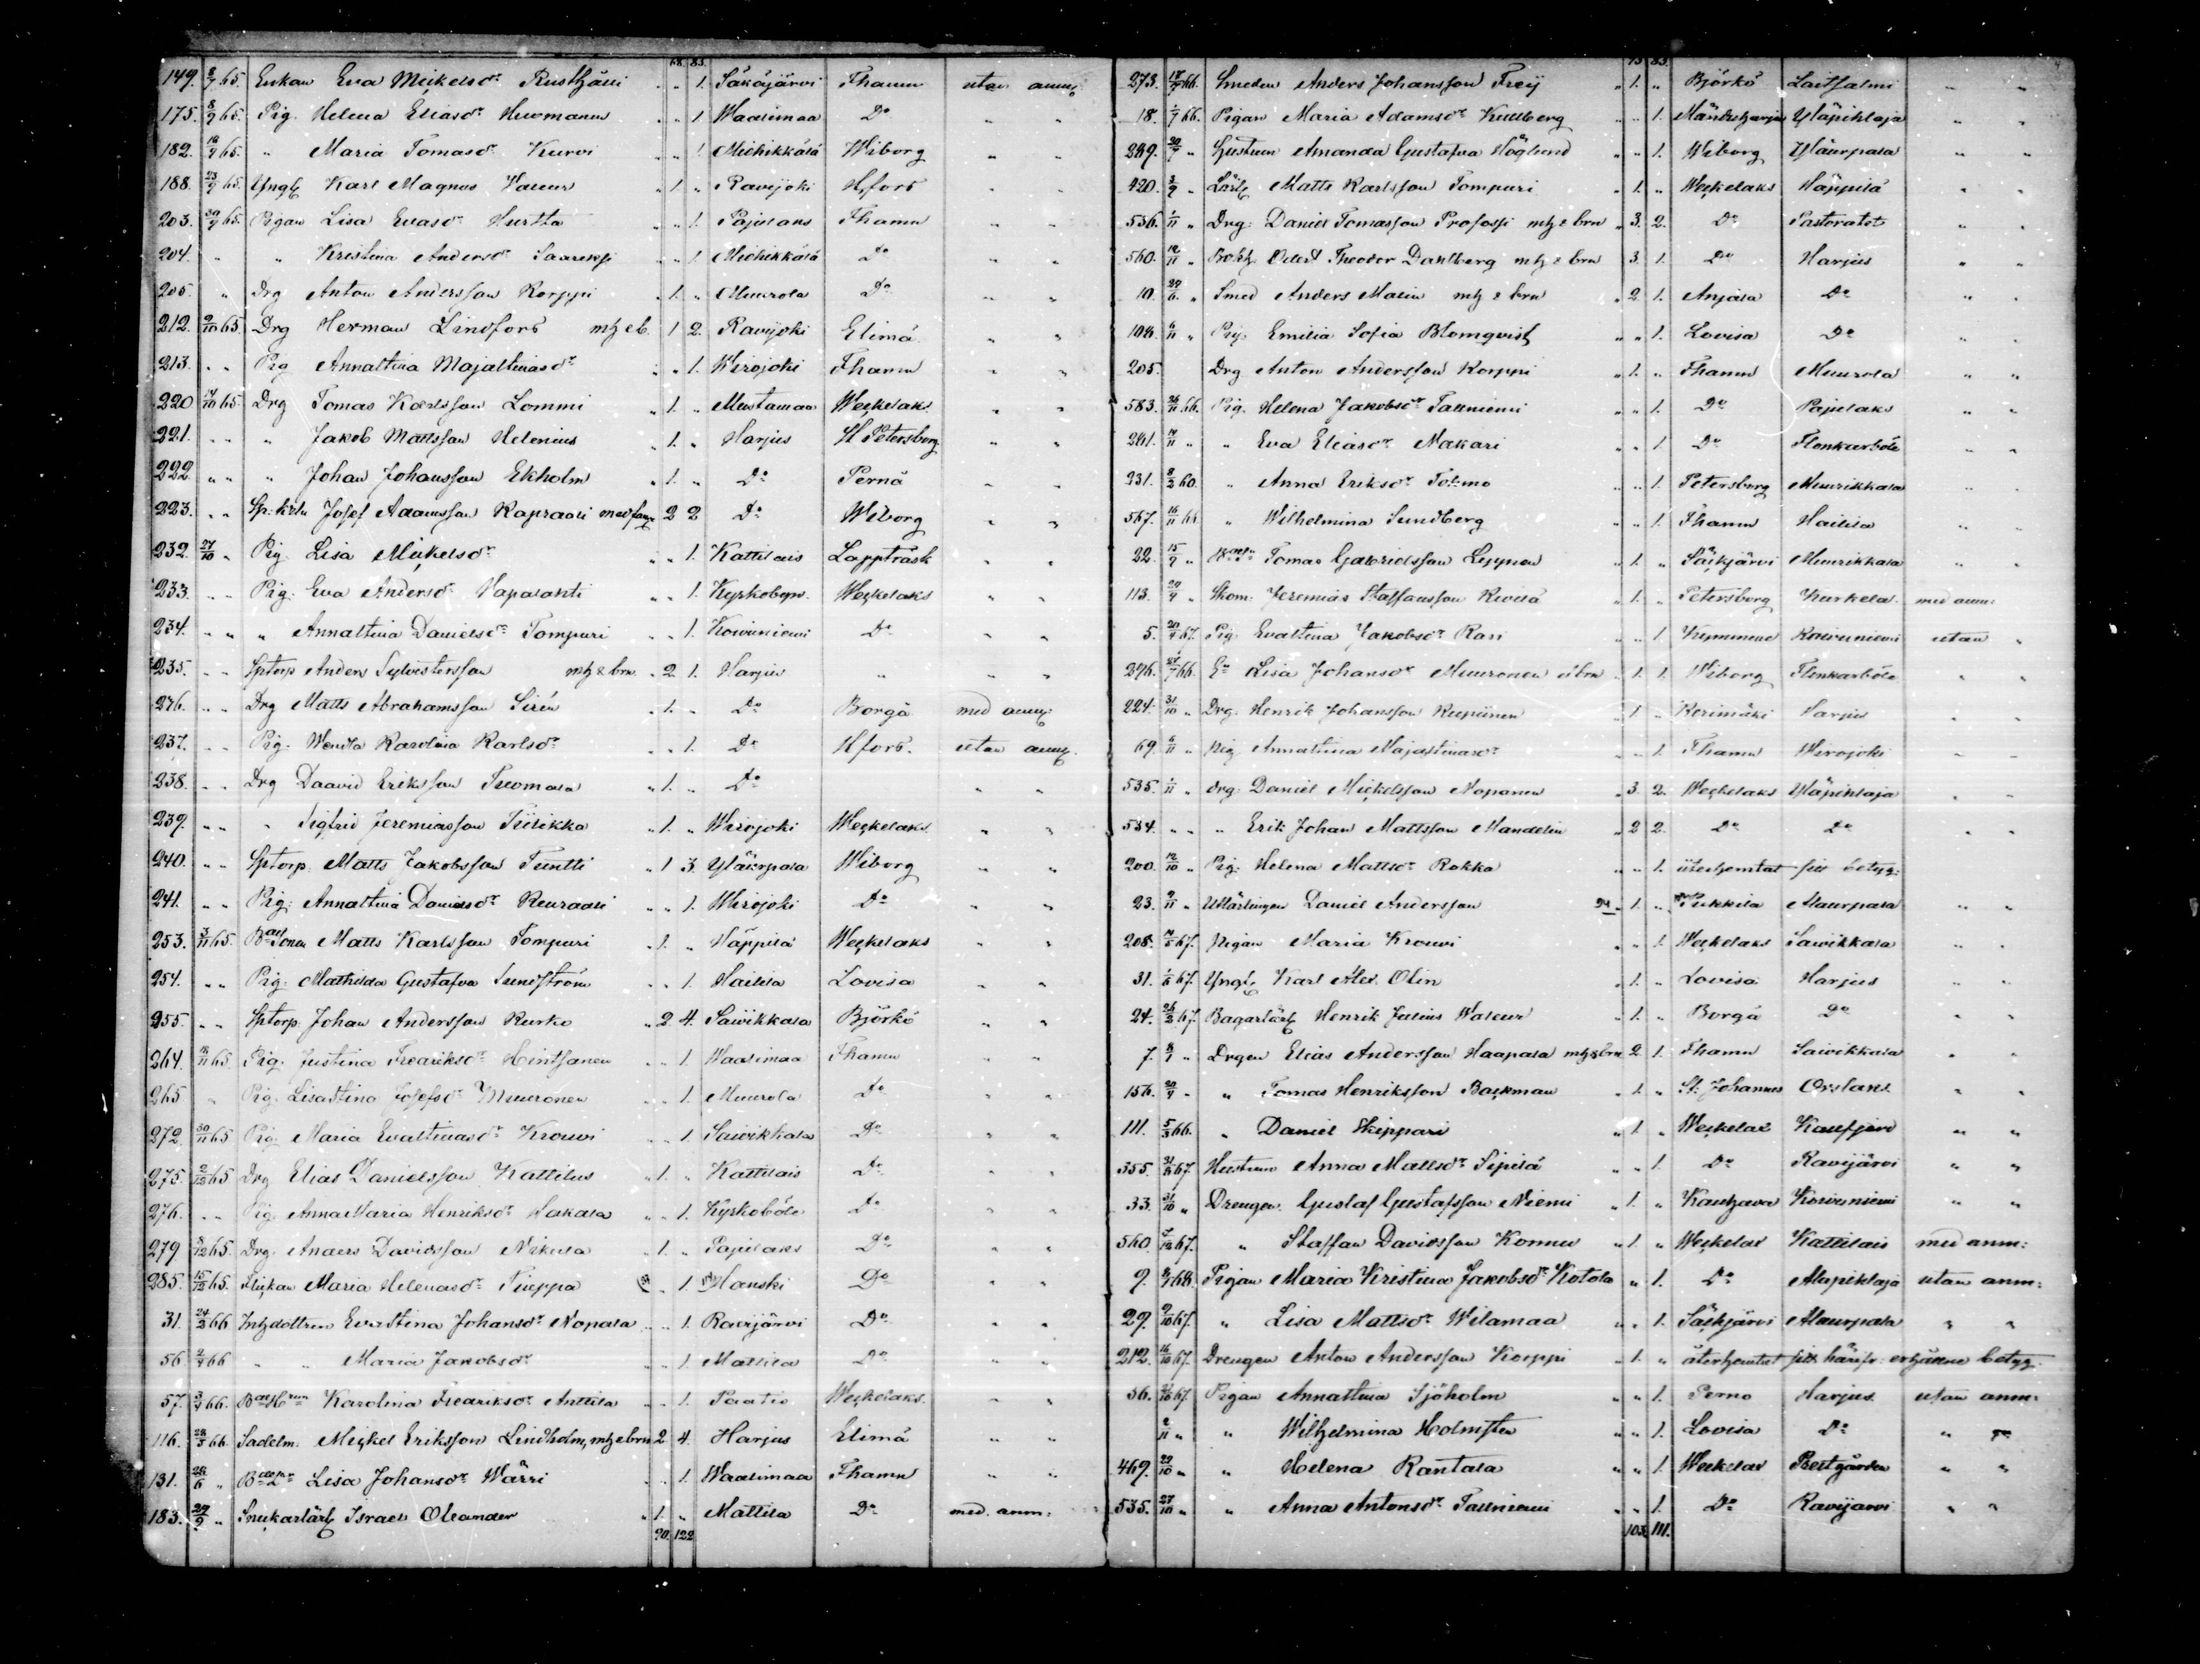 68. 83.
149. 8/7 65. Enkan Eva Mickelsdr „ „ 1. Säkäjärvi Fhamn utan anm:
175. 8/9 65. Pig. Helena Eliasdr „ „ 1 Waalimaa Do „ „
182. 18/9 65. „ Maria Tomasdr Kurvi „ „ 1 Miehikkälä Wiborg „ „
188. 23/9 65. Yngl Karl Magnus „ 1 „ Ravijoki Hfors „ „
203. 30/9 65. Pigan Lisa Evasdr Hurtta „ „ 1. Pajulaks Fhamn „ „
204. „ „ Kristina Andersdr „ „ 1 Miehikkälä Do „ „
205. „ Drg Anton Andersson Korppi „ 1. „ Muurola Do „ „
212. 2/10 65. Drg Herman Lindfors mh & b. 1 2. Ravijoki Elimä „ „
213. „ „ Pig Annastina Majastinasdr „ „ 1. Wirojoki Fhamn „ „
220 14/10 65. Drg Tomas Karlsson Lommi „ 1. „ Mustamaa Weckelaks „ „
221. „ „ „ Jakob Mattsson Helenius „ 1. „ Harjus St Petersborg „ „
222 „ „ „ Johan Johansson Ekholm „ 1. „ Do Pernå „ „
223. „ „ Josef Adamsson Kapraali med familj 2 2 Do Wiborg „ „
232. 27/10 „ Pig. Lisa Mickelsdr „ „ 1. Kattilais Lappträsk „ „
233. „ „ Pig. Eva Andersdr Wapalahti „ „ 1. Kyrkobyn Weckelaks „ „
234. „ „ „ Annastina Danielsdr Tompuri „ „ 1. Koivuniemi Do „ „
235. „ „ Sptorp Anders Sylvestersson mh & brn „ 2 1. Harjus „ „ „
236. „ „ Drg Matts Abrahamsson Sirén „ 1. „ Do Borgå med anm:
237. „ „ Pig. Wendla Karolina Karlsdr „ „ 1. Do Hfors. utan anm:
238. „ „ Drg David Eriksson „ 1. „ Do „ „
239. „ „ „ Sigfrid Jeremiasson Tiilikka „ 1. „ Wirojoki Weckelaks „ „
240. „ „ Sptorp. Matts Jakobsson Tuutti „ 1 3. Yläurpala Wiborg „ „
241. „ „ Pig. Annastina Danielsdr „ „ 1. Wirojoki Do „ „
253. 3/11 65. Matts Karlsson Tompuri „ 1. „ Häppilä Weckelaks „ „
254. „ „ Pig. Mathilda Gustafva Sundström „ „ 1. Hailila Lovisa „ „
255. „ „ Sptorp. Johan Andersson Kurko „ 2. 4. Saivikkala Björkö „ „
264. 18/11 65. Pig. Justina Fredriksdr Hintsanen „ „ 1. Waalimaa Fhamn „ „
265 „ Pig. Lisastina Josefsdr Muuronen „ „ 1. Muurola Do
272. 30/11 65 Pig. Maria Evastinasdr Krouvi „ „ 1. Saivikkala Do „ „
275. 2/12 65 Drg Elias Danielsson Kattilus „ 1. „ Kattilais Do „ „
276. „ „ Pig. Anna Maria Henriksdr „ „ 1. Kyrkoböle Do „ „
279 8/12 65. Drg. Anders Davidsson Nikula „ 1. „ Pajulaks Do „ „
285. 15/12 65. Flickan Maria Helenasdr „ 1. Hanski Do „ „
31. 24/2 66 Inhdottren Evastina Johansdr Nopala „ „ 1. Ravijärvi Do „ „
56 2/4 66 „ „ Maria Jakobsdr „ „ 1 Mattila Do
57. 3/4 66. Karolina Fredriksdr Anttila „ „ 1. Paatio Weckelaks. „ „
116. 28/5 66. Sadelm. Mickel Eriksson Lindholm, mh & brn 2 4. Harjus Elimä „ „
131. 26/6 „ Lisa Johansdr Wärri „ „ 1. Waalimaa Fhamn „ „
183. 29/9 „ Snickarlärl Israel Oleander „ 1. „ Mattila Do med anm:
90. 122
273. 18/9 66. Smeden Anders Johansson Frey „ 1. „ Björkö Laitsalmi „ „
18. 1/9 66. Pigan Maria Adamsdr Kullberg „ „ 1. Mäntyharju Yläpihlaja „ „
249. 29/9 „ Hustrun Amanda Gustafva Höglund „ „ 1. Wiborg Yläurpala „ „
420. 3/9 „ Lärl Matts Karlsson Tompuri „ 1. „ Weckelaks Häppilä „ „
536. 1/11 „ Drg. Daniel Tomasson Profossi mh & brn „ 3. 2. Do Pastoratet „ „
560. 12/11 „ Theodor Dahlberg mh & brn 3. 1. Do Harjus „ „
10. 29/6 „ Smed Anders Malin mh & brn „ 2 1. Anjala Do „ „
104. 6/11 „ Pig. Emilia Sofia Blomqvist „ „ 1. Lovisa Do „ „
205. Drg Anton Andersson Korppi „ 1. „ Fhamn Muurola „ „
583. 26/11 66. Pig. Helena Jakobsdr Tallniemi „ „ 1. Do Pajulaks „ „
241. 14/11 „ „ Eva Eliasdr Makari „ „ 1 Do Flonkarböle „ „
231. 8/2 60. „ Anna Eriksdr Tolmo „ „ 1. Petersborg Muurikkala
567. 16/11 66 „ Wilhelmina Sundberg „ „ 1. Fhamn Hailila „ „
22. 15/9 „ Tomas Gabrielsson Leppänen „ 1. „ Säkjärvi Muurikkala „ „
113. 29/9 „ Skom. Jeremias Staffansson „ 1. „ Petersborg Kurkela med anm:
5. 20/9 67. Pig. Evastina Jakobsdr Rasi „ „ 1. Kymmene Koivuniemi utan „
276. 27/7 66. Lisa Johansdr Muuronen o brn 1. 1. Wiborg Flonkarböle „ „
224. 31/10 „ Drg. Henrik Johansson „ 1 „ Kerimäki Harjus „ „
69. 6/11 „ Pig Annastina Majastinasdr „ „ 1. Fhamn Wirojoki „ „
535. 1/11 „ Drg. Daniel Mickelsson Nopanen „ 3. 2. Weckelaks Yläpihlaja „ „
534. „ „ „ Erik Johan Mattsson Mandelin „ 2 2. Do Do „ „
200. 12/10 „ Pig. Helena Mattsdr Rokka „ „ 1. återhemtat sitt betyg:
23. 9/11 „ Daniel Andersson „ 1. „ Pukkila Alaurpala „ „
208. 14/5 67. Pigan Maria Krouvi „ „ 1. Weckelaks Saivikkala „ „
31. 1/6 67. Yngl Karl Alex. Olin „ 1. „ Lovisa Harjus „ „
24. 26/2 67. Bagarlärl Henrik Julius „ 1. „ Borgå Do „ „
7. 8/1 „ Drgen Elias Andersson Haapala mh & brn 2 1. Fhamn Saivikkala „ „
156. 20/9 „ „ Tomas Henriksson Backman „ 1. „ St: Johannes Orslaks „ „
111. 5/3 66. „ Daniel Skippari „ 1. „ Weckelax „ „
355. 31/8 67. Hustrun Anna Mattsdr Sipilä „ „ 1. Do Ravijärvi „ „
33. 31/10 „ Drengen Gustaf Gustafsson Niemi „ 1. „ Kauhava Koivuniemi „ „
560. 7/12 67. „ Staffan Davidsson Konnu „ 1. „ Weckelax Kattilais med anm:
9. 8/1 68. Pigan Maria Kristina Jakobsdr Kotola „ 1. Do Alapihlaja utan anm:
29. 9/10 67. „ Lisa Mattsdr Wilamaa „ „ 1. Säkjärvi Alaurpala „ „
212. 16/10 67. Drengen Anton Andersson Korppi „ 1. „ återhemtat sitt härifr. erhållne betyg.
36. 10 67. Pigan Annastina Sjöholm „ „ 1. Perno Harjus utan anm:
2/11 „ „ Wilhelmina Holmsten „ „ 1. Lovisa Do „ „
469. 29/10 „ „ Helena Rantala „ „ 1. Weckelax Prestgården „ „
535. 27/10 „ „ Anna Antonsdr Tallniemi „ „ 1. Do Ravijarvi „ „
103. 111.